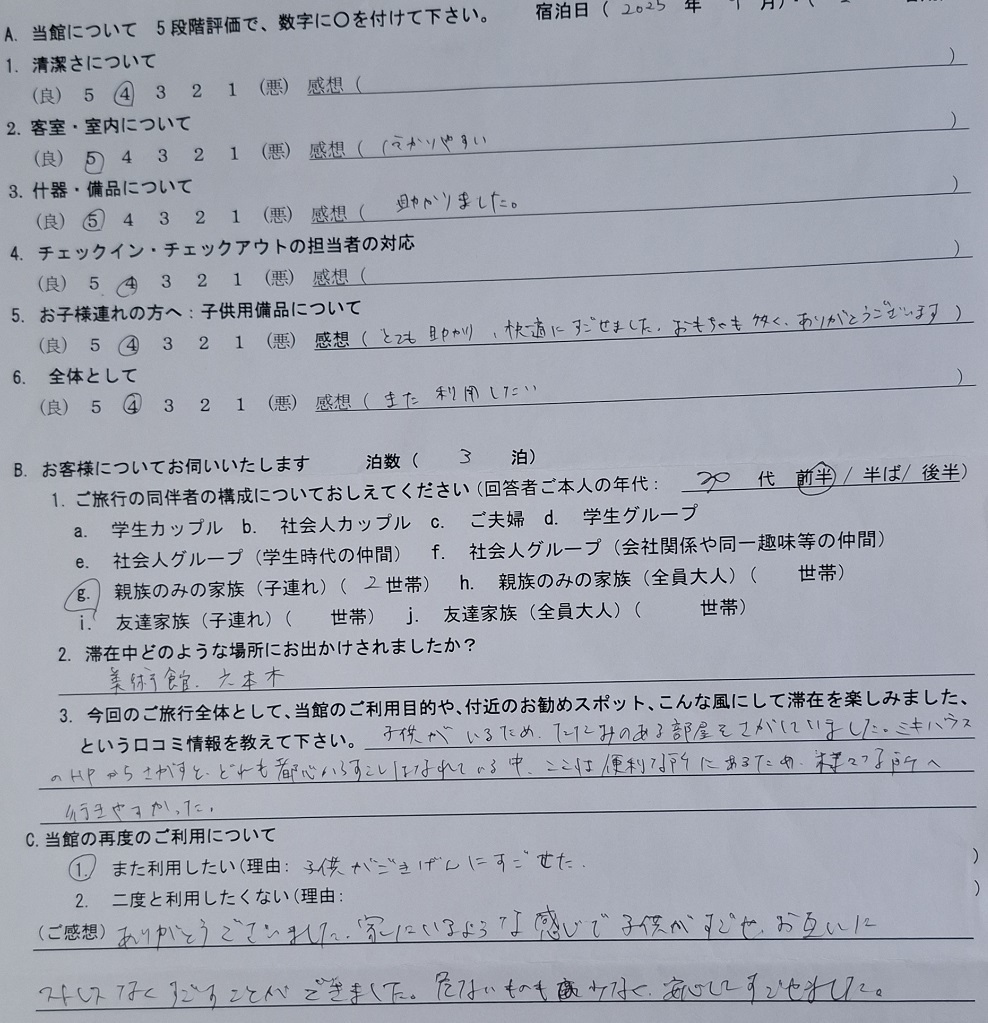 A. 当館について 5段階評価で、数字に○を付けて下さい。 宿泊日( 2025 年 月)
1. 清潔さについて
(良) 5 4 3 2 1 (悪) 感想( )
2. 客室・室内について
(良) 5 4 3 2 1 (悪) 感想( かりやすい )
3. 什器・備品について
(良) 5 4 3 2 1 (悪) 感想( 助かりました。 )
4. チェックイン・チェックアウトの担当者の対応
(良) 5 4 3 2 1 (悪) 感想( )
5. お子様連れの方へ:子供用備品について
(良) 5 4 3 2 1 (悪) 感想( とても助かり、快適にすごせました。おもちゃも多く、ありがとうございます )
6. 全体として
(良) 5 4 3 2 1 (悪) 感想( また利用したい )
B. お客様についてお伺いいたします 泊数( 3 泊)
1. ご旅行の同伴者の構成についておしえてください(回答者ご本人の年代: 30 代 前半/半ば/後半)
a. 学生カップル b. 社会人カップル c. ご夫婦 d. 学生グループ
e. 社会人グループ(学生時代の仲間) f. 社会人グループ(会社関係や同一趣味等の仲間)
g. 親族のみの家族(子連れ)( 2世帯) h. 親族のみの家族(全員大人)( 世帯)
i. 友達家族(子連れ)( 世帯) j. 友達家族(全員大人)( 世帯)
2. 滞在中どのような場所にお出かけされましたか?
美術館、六本木
3. 今回のご旅行全体として、当館のご利用目的や、付近のお勧めスポット、こんな風にして滞在を楽しみました、
という口コミ情報を教えて下さい。 子供がいるため、たたみのある部屋をさがしていました。ミキハウス
のHPからさがすと、どれも都心からすこしはなれている中、ここは便利な所にあるため、様々な所へ
行きやすかった。
C.当館の再度のご利用について
1. また利用したい(理由: 子供がごきげんにすごせた。 )
2. 二度と利用したくない(理由: )
(ご感想) ありがとうございました。家にいるような感じで子供がすごせ、お互いに
ストレスなくすごすことができました。危ないものも なく、安心してすごせました。